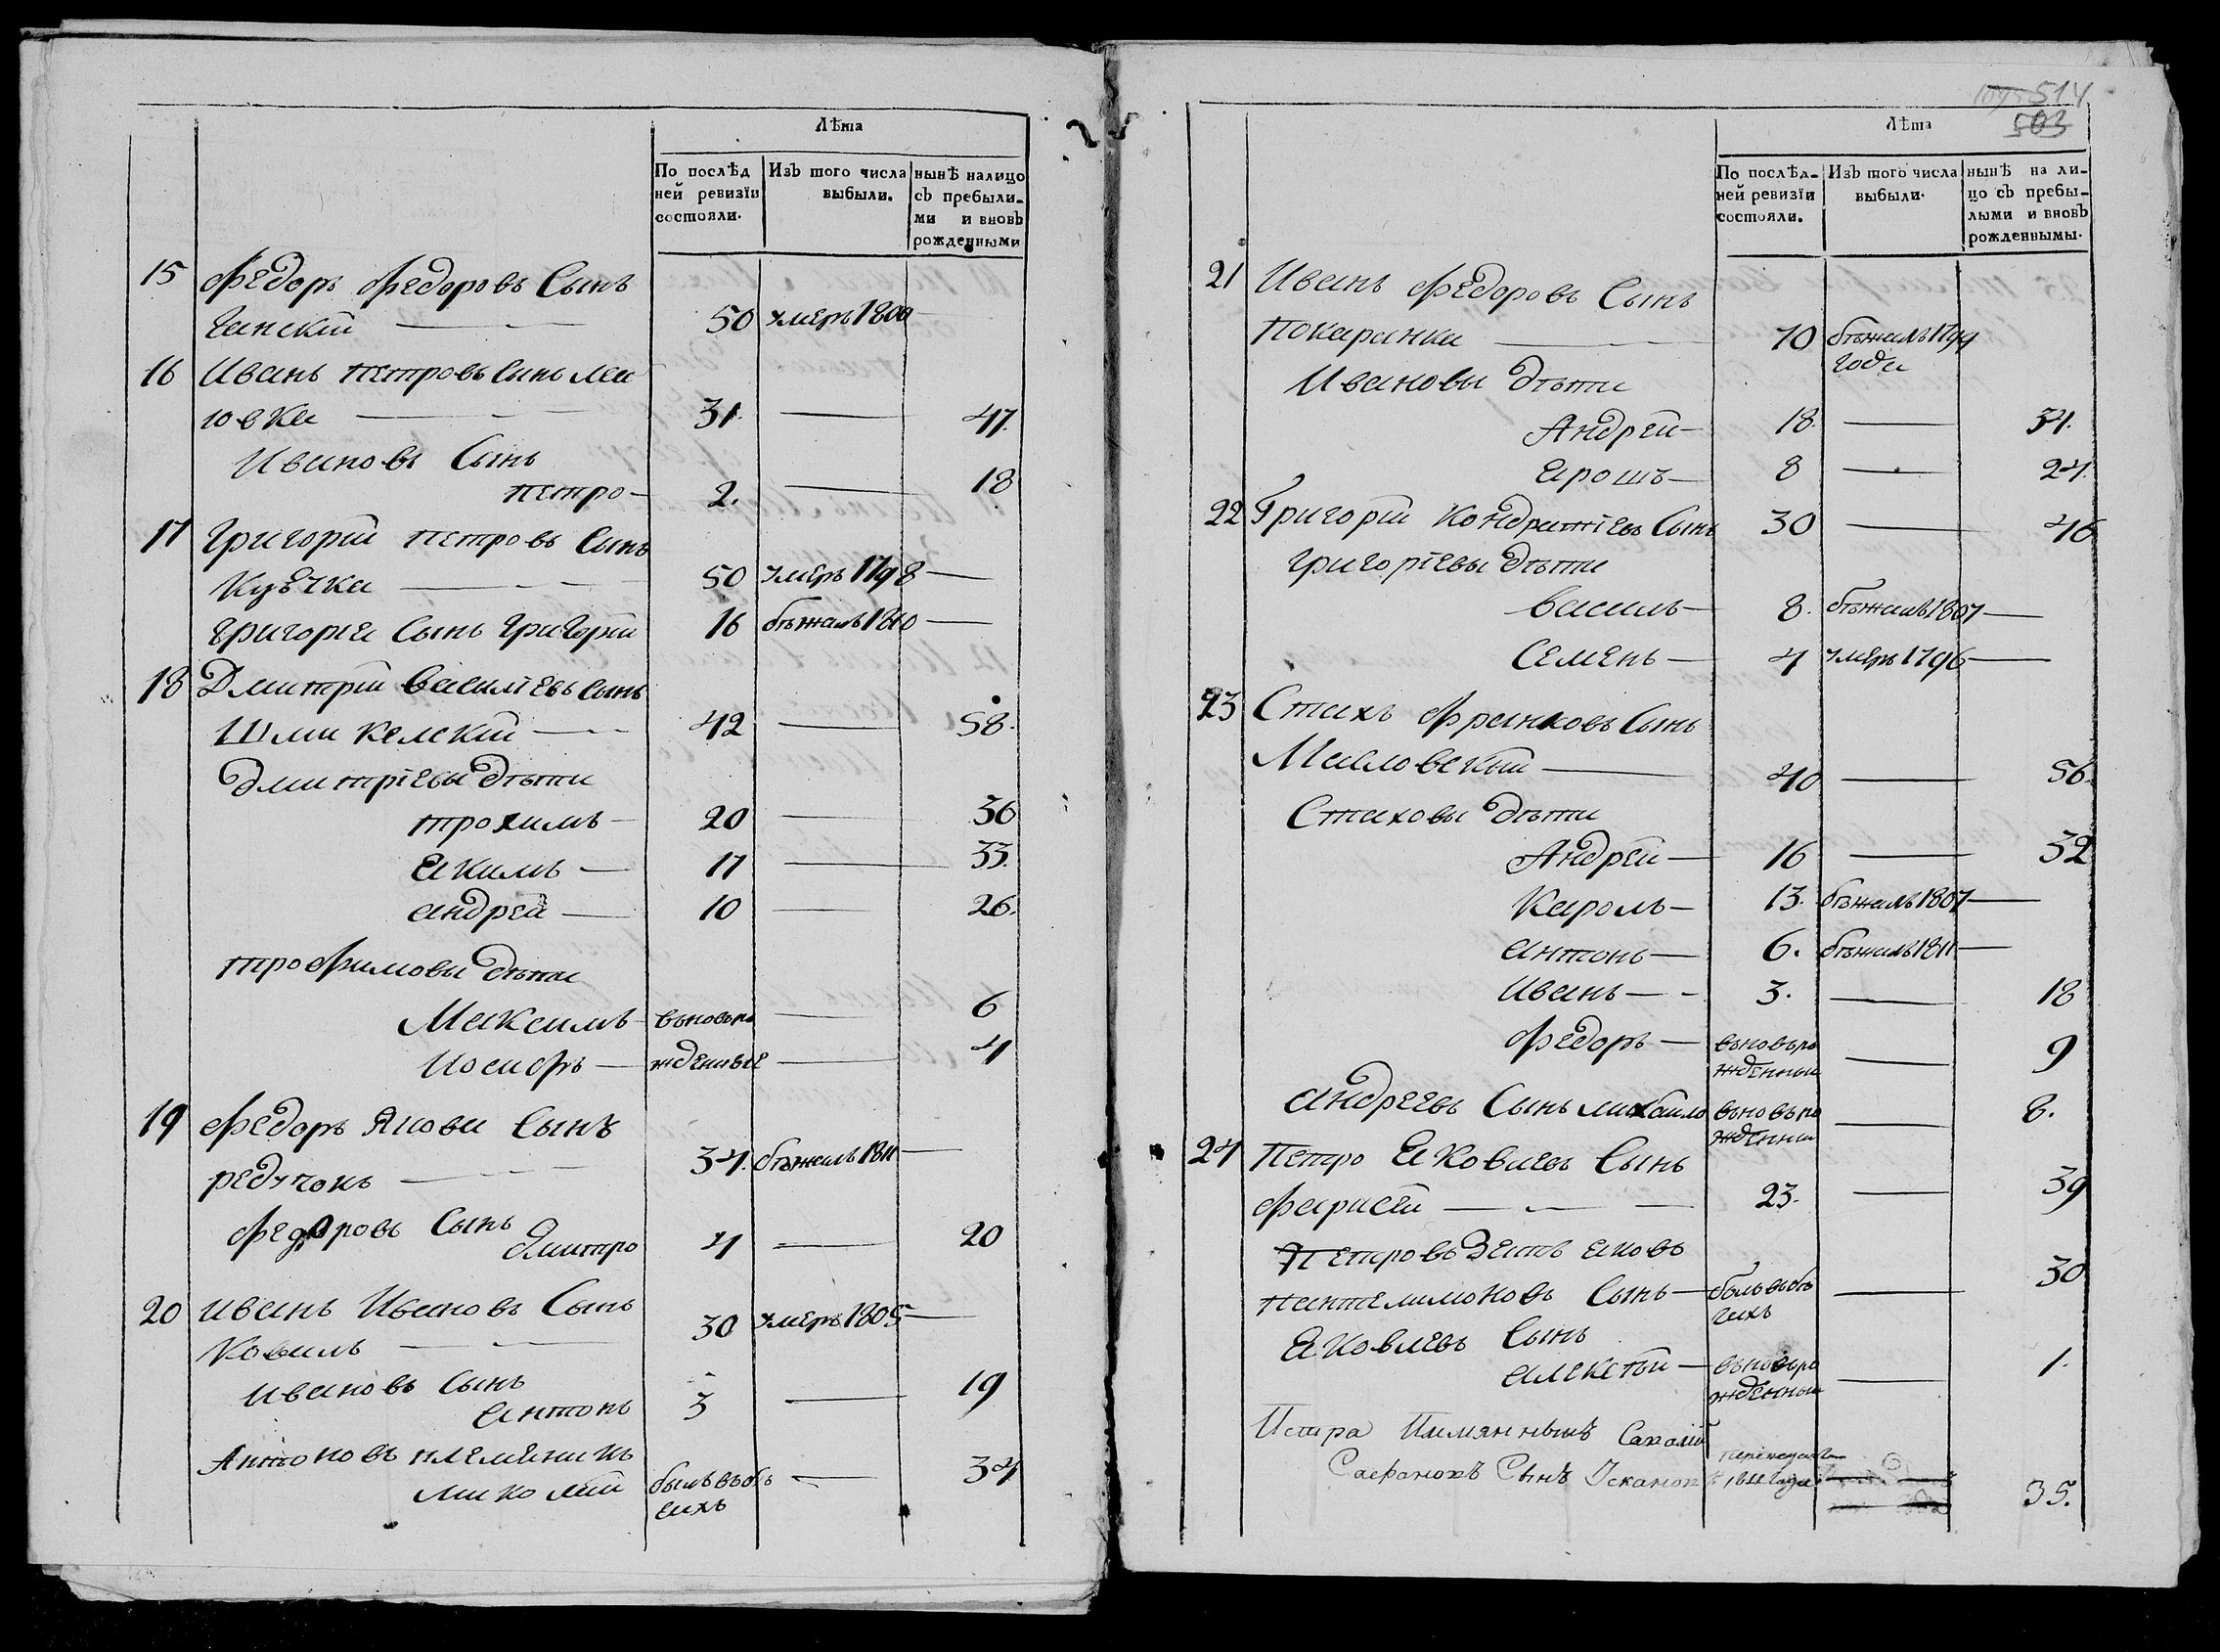 Лѣта
По послѣд
ней ревизїи
состояли.
Изъ того числа
выбыли.
нынѣ налицо
съ пребыли-
ми и вновь
рожденными
15 Федоръ Федоровъ Сынъ
50 умеръ 1800
16 Иванъ петровъ Синь Ма
ювка 31. 47.
Ивановъ Сынъ
петро 2. 18
17 Григорій петровъ Сынъ
Куъчка 50 умеръ 1798
Григорiя Сынъ Григорій 16 бѣжалъ 1810
18 Дмитрій Василiевъ Сынъ
Шмикелскій 42 58.
Дмитрiевы дѣти
трохимъ 20 36
Якимъ 17 33.
андрей 10 26.
трофимовы дѣти
Максимъ вьновьро 6
Иосифъ жденные 4
19 Федоръ Якова Сынъ
редучокъ 34. бѣжалъ 1811
Федоровъ Сынъ
Дмитро 4 20
20 иванъ Ивановъ Сынъ
Ковалъ 30 умеръ 1805
ивановъ Сынъ
антонъ 3 19
Антоновъ племяникъ
миколай былъ въ бѣ 34
гахъ
514
503
Лѣта
По послѣд-
ней ревизїи
состояли.
Изъ того числа
выбыли.
нынѣ на ли-
цо съ пребы-
лыми и вновь
рожденнымы.
21 Иванъ Федоровъ Сынъ
Покаранка 70 бѣжалъ 1799
года
Ивановы дѣти
Андрей 18. 34.
ярошъ 8 24.
22 Григорій Кондратiевъ Сынъ 30 46
григорiевы дѣти
василь 8. бѣжалъ 1807
Семенъ 4 умеръ 1796
23 Стахъ Франковъ Сынъ
Масловскый 40 56.
Стаховы дѣти
Андрей 16 32
Кароль 13. бѣжалъ 1807
антонъ 6. бѣжалъ 1811
иванъ 3. 18
Федоръ вьновьро 9
жденный
андреевъ Сынъ михайло вьновьро 8.
жденный
24 Петро Яковлевъ Сынъ
Фарисей 23. 39
Петровъ Зять яковъ
пантелимоновъ Сынъ былъ въ бѣ 30
гахъ
Яковлевъ Сынъ
алексѣй вьновьро 1.
жденный
Петра
Сынъ
1811 года 35.